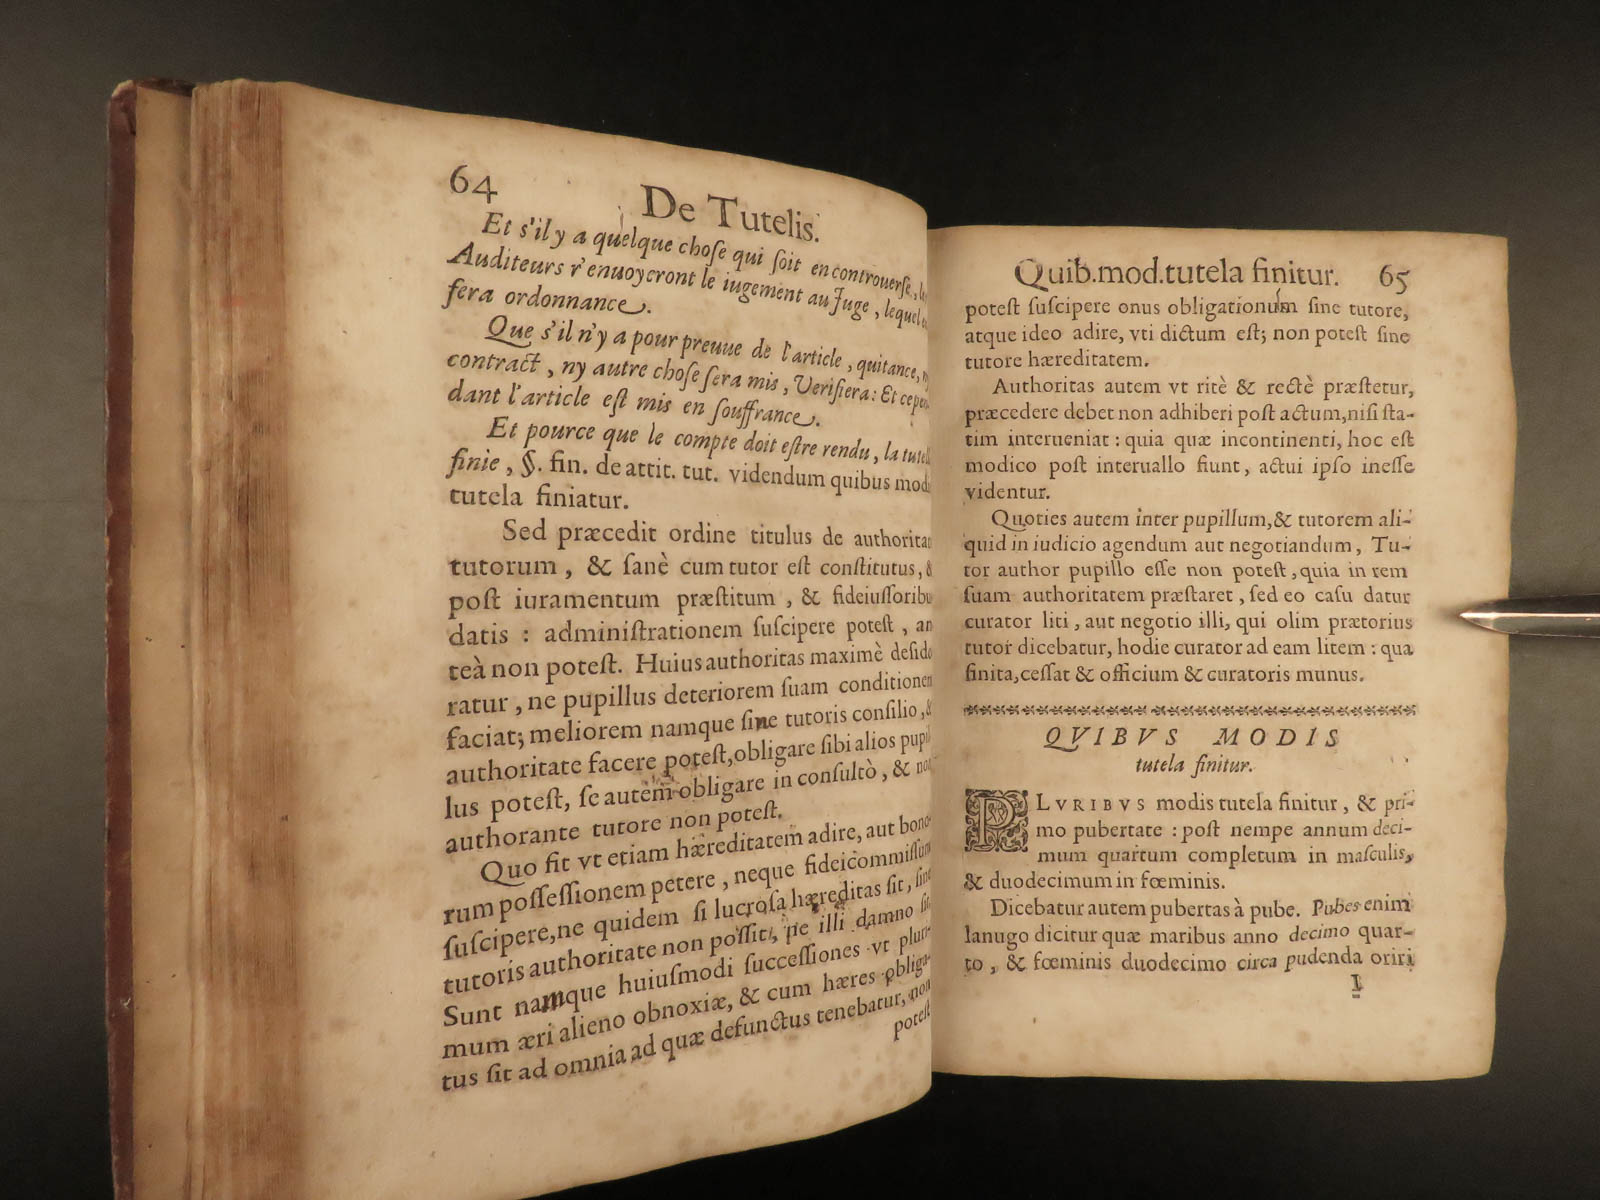 64
De Tutelis.
Et s'il y a quelque choſe qui ſoit en controuerſe,
Auditeurs r'enuoycront le iugement au Juge, lequel
fera ordonnance.
Que s'il n'y a pour preuue de l'article, quitance,
contract, ny autre choſe ſera mis, Veriſiera: Et cepen
dant l'article eſt mis en ſouffrance.
Et pource que le compte doit eſtre rendu, la tutel
finie, §. fin. de attit. tut. videndum quibus mod
tutela finiatur.
Sed præcedit ordine titulus de authorita
tutorum, & ſanè cum tutor eſt conſtitutus, &
poſt iuramentum præſtitum, & fideiuſſoribu
datis: adminiſtrationem ſuſcipere poteſt, an
teà non poteſt. Huius authoritas maximè deſide
ratur, ne pupillus deteriorem ſuam conditionem
faciat; meliorem namque ſine tutoris conſilio, &
authoritate facere poteſt, obligare ſibi alios pupil
lus poteſt, ſe autem obligare in conſultò, & non
authorante tutore non poteſt.
Quo fit vt etiam hæreditatem adire, aut bono-
rum poſſeſſionem petere, neque fideicommiſſum
ſuſcipere, ne quidem ſi lucroſa hæreditas ſit, ſine
tutoris authoritate non poſſit, ne illi damno ſit.
Sunt namque huiuſmodi ſucceſſiones vt pluri-
mum æri alieno obnoxiæ, & cum hæres obliga-
tus ſit ad omnia ad quæ defunctus tenebatur, non
poteſt
Quib. mod. tutela finitur. 65
poteſt ſuſcipere onus obligationum ſine tutore,
atque ideo adire, vti dictum eſt; non poteſt ſine
tutore hæreditatem.
Authoritas autem vt ritè & rectè præſtetur,
præcedere debet non adhiberi poſt actum, niſi ſta-
tim interueniat: quia quæ incontinenti, hoc eſt
modico poſt interuallo fiunt, actui ipſo ineſſe
videntur.
Quoties autem inter pupillum, & tutorem ali-
quid in iudicio agendum aut negotiandum, Tu-
tor author pupillo eſſe non poteſt, quia in rem
ſuam authoritatem præſtaret, ſed eo caſu datur
curator liti, aut negotio illi, qui olim prætorius
tutor dicebatur, hodie curator ad eam litem: qua
finita, ceſſat & officium & curatoris munus.
QVIBVS MODIS
tutela finitur.
PLVRIBVS modis tutela finitur, & pri-
mo pubertate: poſt nempe annum deci-
mum quartum completum in maſculis,
& duodecimum in fœminis.
Dicebatur autem pubertas à pube. Pubes enim
lanugo dicitur quæ maribus anno decimo quar-
to, & fœminis duodecimo circa pudenda oriri
I